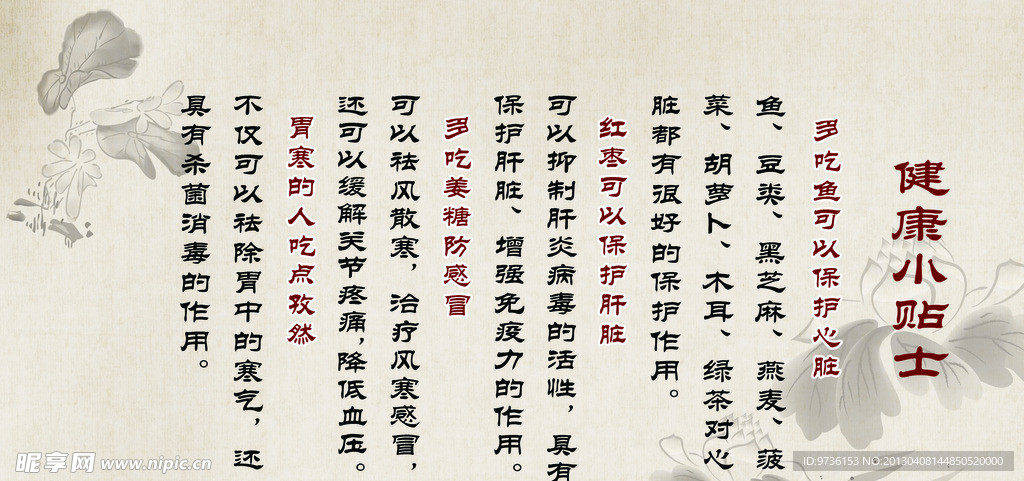 健康小贴士
多吃鱼可以保护心脏
鱼、豆类、黑芝麻、燕麦、菠
菜、胡萝卜、木耳、绿茶对心
脏都有很好的保护作用。
红枣可以保护肝脏
可以抑制肝炎病毒的活性，具有
保护肝脏、增强免疫力的作用。
多吃姜糖防感冒
可以祛风散寒，治疗风寒感冒，
还可以缓解关节疼痛，降低血压。
胃寒的人吃点孜然
不仅可以祛除胃中的寒气，还
具有杀菌消毒的作用。
昵享网 www.nipic.cn
ID:9736153 NO:20130408144850520000